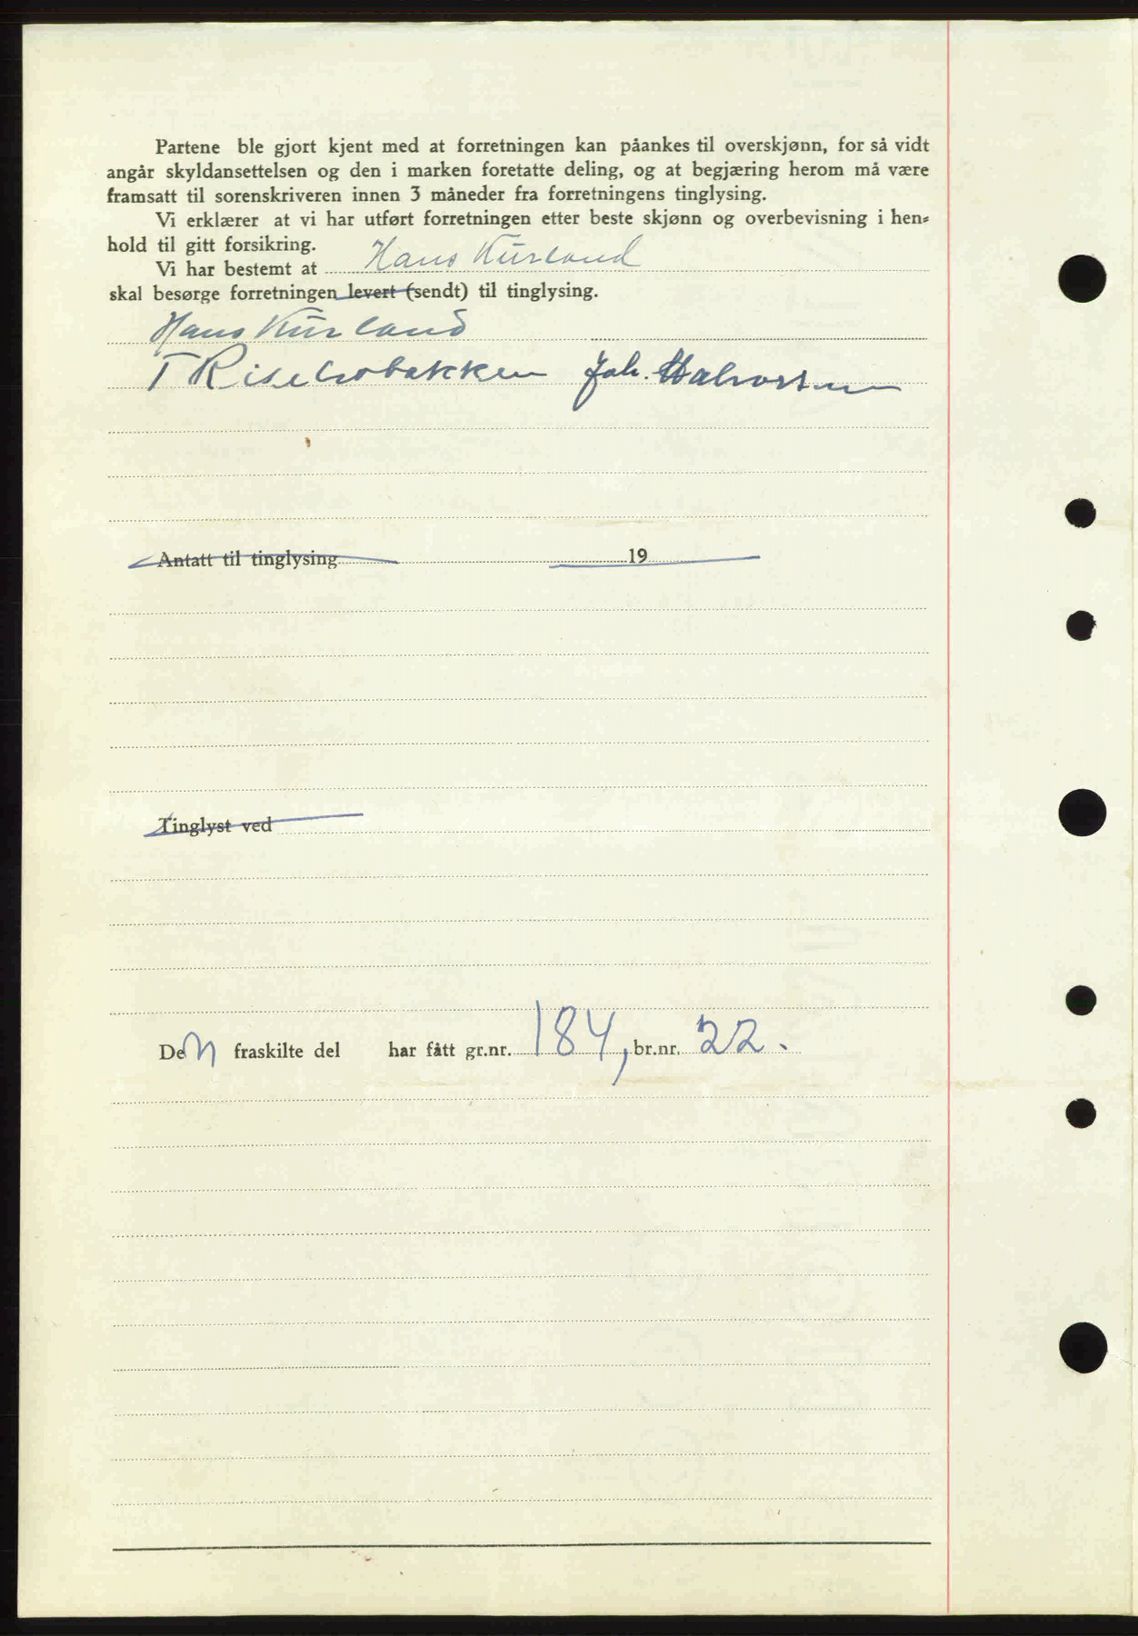 Partene ble gjort kjent med at forretningen kan påankes til overskjønn, for så vidt
angår skyldansettelsen og den i marken foretatte deling, og at begjæring herom må være
framsatt til sorenskriveren innen 3 måneder fra forretningens tinglysing.
Vi erklærer at vi har utført forretningen etter beste skjønn og overbevisning i hen-
hold til gitt forsikring.
Vi har bestemt at Hans Kurland
skal besørge forretningen levert (sendt) til tinglysing.
Hans Kurland
T Risebrobakken Joh. Halvorsen
Antatt til tinglysing 19
Tinglyst ved
Den fraskilte del har fått gr.nr. 184, br.nr. 22.